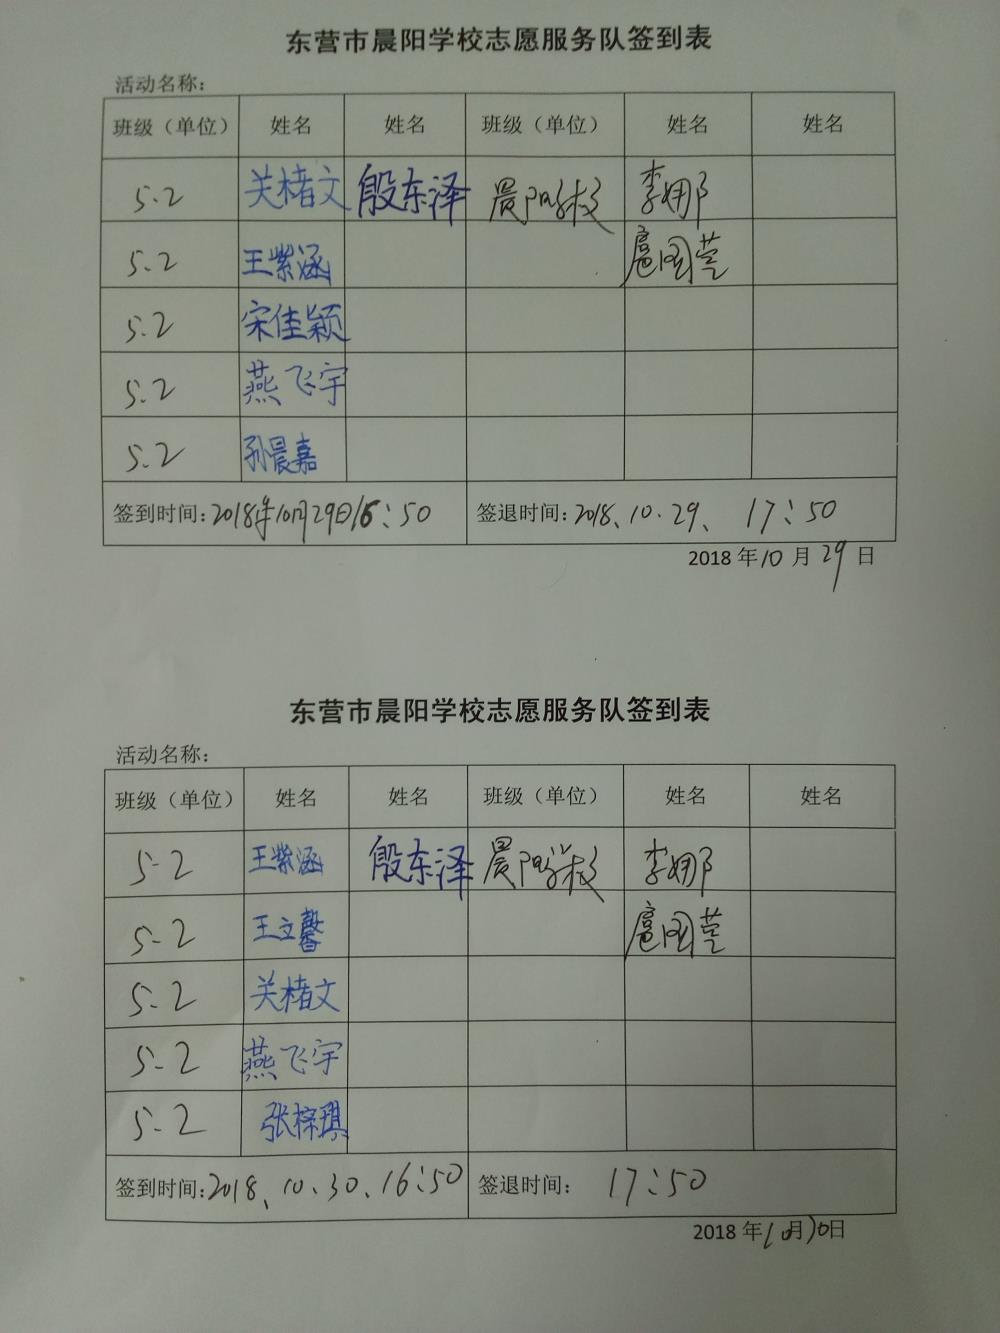 东营市晨阳学校志愿服务队签到表
活动名称：
班级（单位） 姓名 姓名 班级（单位） 姓名 姓名
5.2 关楮文 殷东泽 晨阳学校 李娜
5.2 王紫涵 扈国莹
5.2 宋佳颖
5.2 燕飞宇
5.2 孙晨嘉
签到时间：2018年10月29日16：50 签退时间：2018、10.29、 17：50
2018 年10 月 29 日
东营市晨阳学校志愿服务队签到表
活动名称：
班级（单位） 姓名 姓名 班级（单位） 姓名 姓名
5-2 王紫涵 殷东泽 晨阳学校 李娜
5-2 王文馨 扈国莹
5-2 关楮文
5-2 燕飞宇
5-2 张梓琪
签到时间：2018、10.30、16：50 签退时间： 17：50
2018 年10月30日